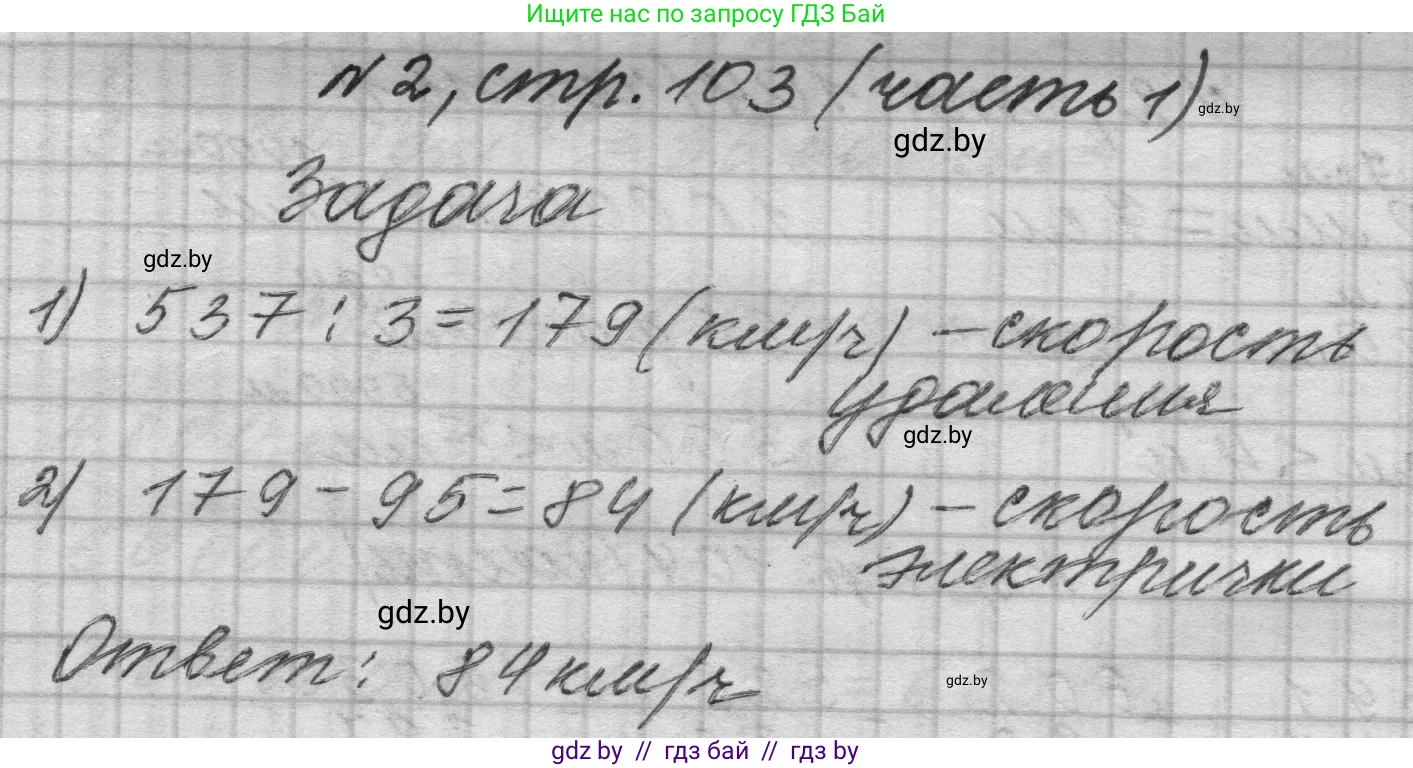 Ищите нас по запросу ГДЗ Бай
№2, стр. 103 (часть 1)
gdz.by
gdz.by
Задача
gdz.by
1) 537 : 3 = 179 (км/ч) – скорость
удаления
gdz.by
2) 179 - 95 = 84 (км/ч) – скорость
электрички
gdz.by
Ответ: 84 км/ч
gdz.by
gdz by // гдз бай // гдз by